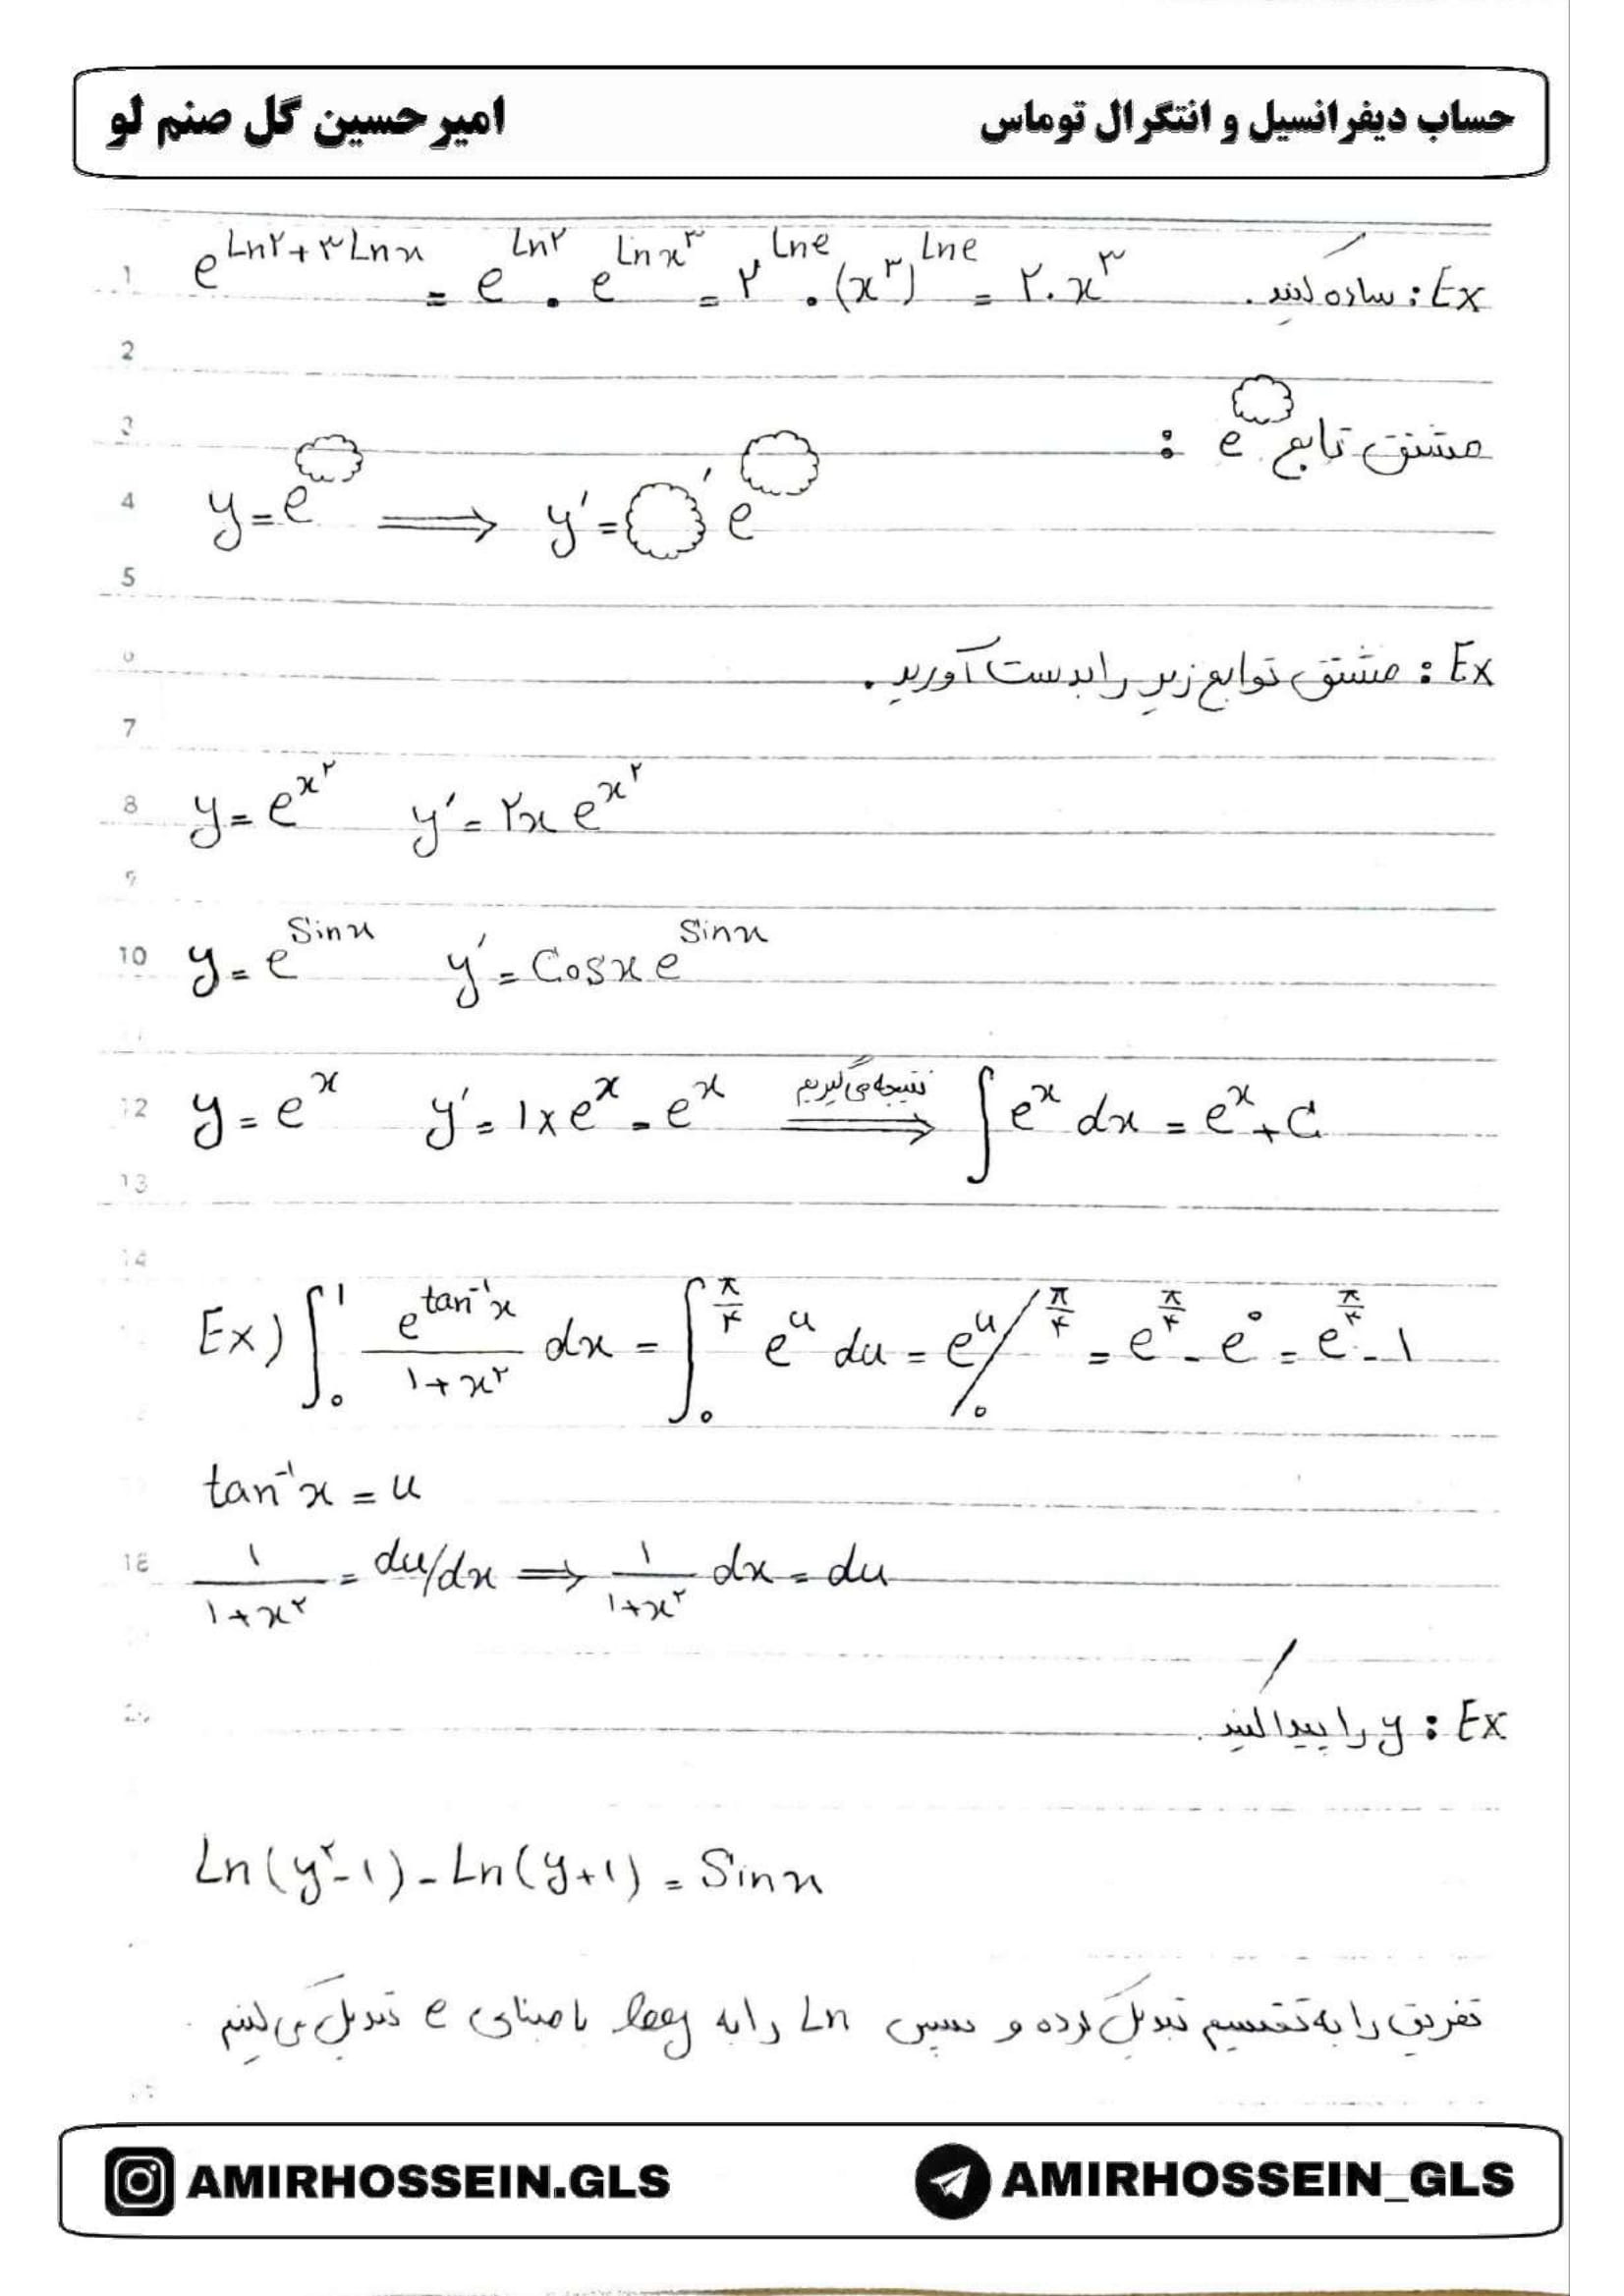 حساب دیفرانسیل و انتگرال توماس
امیرحسین گل صنم لو
Ex : ساده کنید . e^{Ln۲+۳Lnx} = e^{Ln۲} . e^{Lnx^۳} = ۲^{Lne} . (x^۳)^{Lne} = ۲.x^۳
مشتق تابع e :
y=e ⟹ y'= ' e
Ex : مشتق توابع زیر را بدست آورید .
y=e^{x^۲} y'=۲x e^{x^۲}
y=e^{Sinx} y'=Cosx e^{Sinx}
y=e^x y'=1×e^x=e^x نتیجه می‌گیریم ⟹ ∫e^x dx = e^x+C
Ex) ∫_0^1 e^{tan^{-1}x}/(1+x^۲) dx = ∫_0^{π/۴} e^u du = e^u/_0^{π/۴} = e^{π/۴} - e^0 = e^{π/۴} - 1
tan^{-1}x = u
1/(1+x^۲) = du/dx ⟹ 1/(1+x^۲) dx = du
Ex : y را پیدا کنید .
Ln(y^۲-1) - Ln(y+1) = Sinx
تفریق را به تقسیم تبدیل کرده و سپس Ln را به log با مبنای e تبدیل می کنیم .
AMIRHOSSEIN.GLS
AMIRHOSSEIN_GLS
1
2
3
4
5
7
8
9
10
12
13
14
18